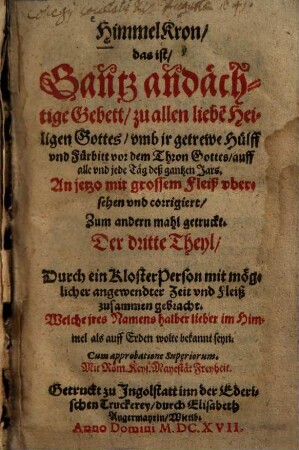 HimmelKron/
das ist/
Gantz andäch-
tige Gebett/ zu allen liebē Hei-
ligen Gottes/ vmb jr getrewe Hülff
vnd Fürbitt vor dem Thron Gottes/ auff
alle vnd jede Täg deß gantzen Jars.
An jetzo mit grossem Fleiß vber-
sehen vnd corrigiert/
Zum andern mahl getruckt.
Der dritte Theyl/
Durch ein KlosterPerson mit mög-
licher angewendter Zeit vnd Fleiß
zusammen gebracht.
Welche jres Namens halber lieber im Him-
mel als auff Erden wolte bekannt seyn.
Cum approbatione Superiorum.
Mit Röm. Keys. Mayestät Freyheit.
Getruckt zu Ingolstatt inn der Ederi-
schen Truckerey/ durch Elisabeth
Angermayrin/ Wittib.
Anno Domini M. DC. XVII.